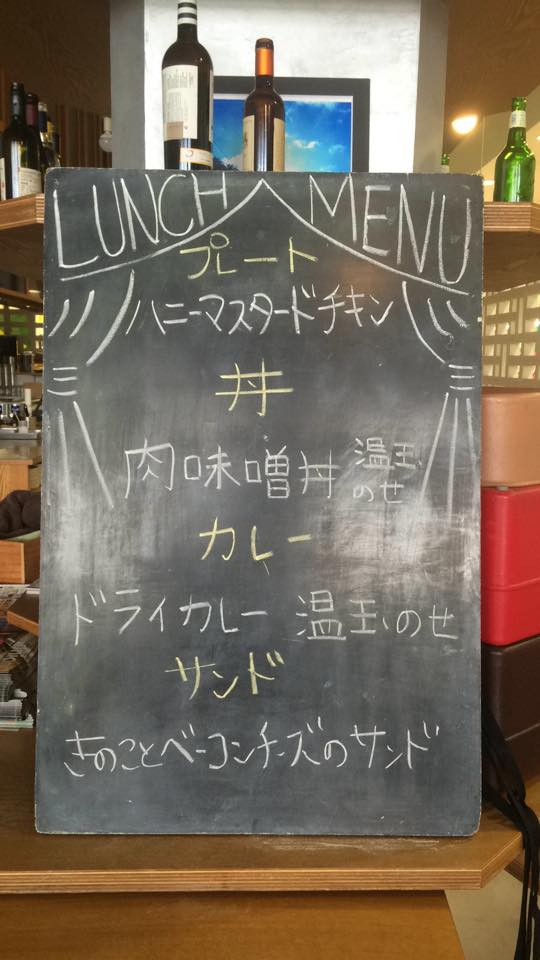 LUNCH MENU
プレート
ハニーマスタードチキン
丼
肉味噌丼 温玉のせ
カレー
ドライカレー 温玉のせ
サンド
きのことベーコンチーズのサンド